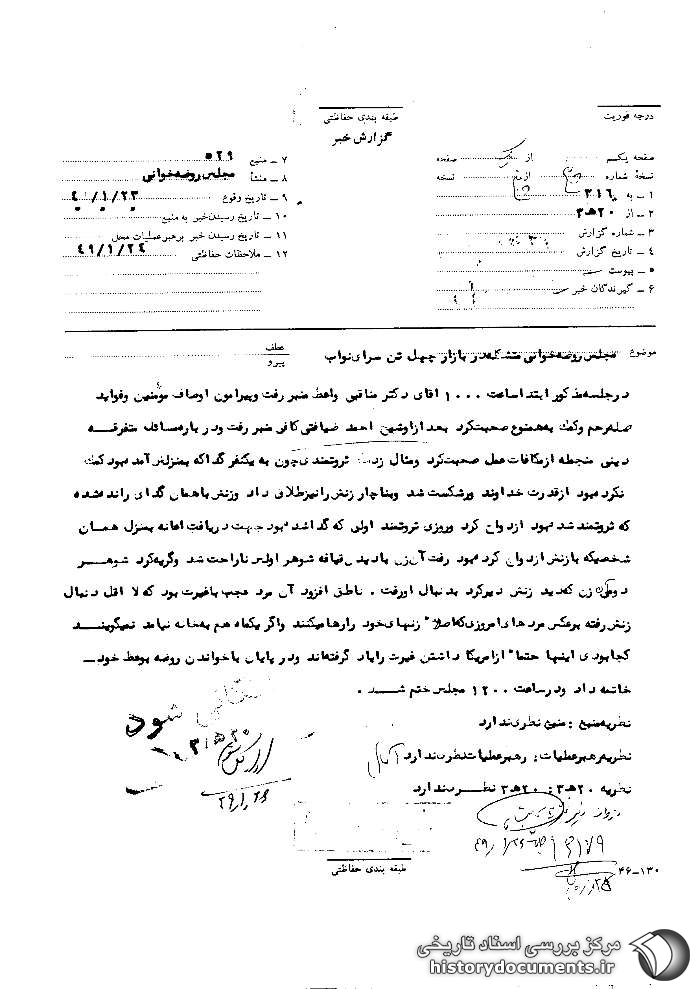 درجه فوریت
طبقه بندی حفاظتی
گزارش خبر
صفحه یکم از صفحه
نسخهٔ شماره از نسخه
۱ ـ به ۳۱۶
۲ ـ از ۲۰هـ۳
۳ ـ شماره گزارش
۴ ـ تاریخ گزارش
۵ ـ پیوست
۶ ـ گیرندگان خبر
۷ ـ منبع ۵۲۹
۸ ـ منشأ مجلس روضه‌خوانی
۹ ـ تاریخ وقوع
۱۰ ـ تاریخ رسیدن خبر به منبع
۱۱ ـ تاریخ رسیدن خبر برهبر عملیات محل ۴۹/۱/۲۴
۱۲ ـ ملاحظات حفاظتی
موضوع مجلس روضه خوانی متشکله در بازار چهل تن سرای نواب
عطف
پیرو
درجلسه مذکور ابتدا ساعت ۱۰۰۰ اقای دکتر مناقبی واعظ منبر رفت وپیرامون اوصاف مومنین وفواید
صله رحم وکمک به همنوع صحبت کرد بعد ازاوشیخ احمد ضیافتی کافی منبر رفت ودرباره مسائل متفرقه
دینی منجمله ازمکافات عمل صحبت کرد ومثال زد ثروتمندی چون به یکنفر گدا که بمنزلش آمد بود کمک
نکرد بود ازقدرت خداوند ورشکست شد وبناچار زنش رانیز طلاق داد وزنش باهمان گدای رانده شده
که ثروتمند شد بود ازدواج کرد وروزی ثروتمند اولی که گدا شد بود جهت دریافت اعانه بمنزل همان
شخصیکه بازنش ازدواج کرد بود رفت آن زن بادیدن قیافه شوهر اولش ناراحت شد وگریه کرد شوهر
دومی زن که دید زنش دیر کرد بدنبال اورفت ۰ ناطق افزود آن مرد عجب باغیرت بود که لا اقل دنبال
زنش رفته برعکس مرد های امروزی که اصلاً زنهای خود را رها میکنند واگر یکماه هم به خانه نیامد نمیگویند
کجا بودی اینها حتماً ازامریکا داشتن غیرت رایاد گرفته‌اند ودر پایان باخواندن روضه بوعظ خود ـ
خاتمه داد ودر ساعت ۱۲۰۰ مجلس ختم شد ۰
نظریه منبع : منبع نظری ندارد
نظریه رهبر عملیات : رهبر عملیات نظری ندارد
نظریه ۲۰هـ۳ : ۲۰هـ۳ نظری ندارد
شود
طبقه بندی حفاظتی
۴۶-۱۳۰
مرکز بررسی اسناد تاریخی
historydocuments.ir